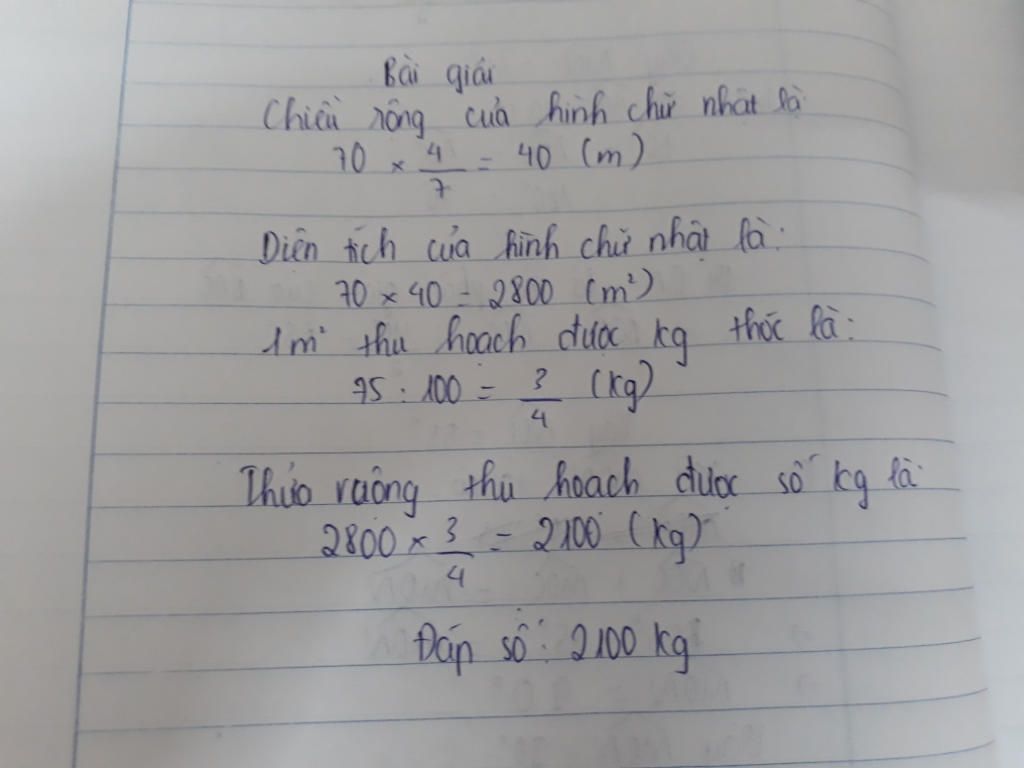 Bài giải
Chiều rộng của hình chữ nhật là
70 × 4/7 = 40 (m)
Diện tích của hình chữ nhật là:
70 × 40 = 2800 (m²)
1m² thu hoạch được kg thóc là:
75 : 100 = 3/4 (kg)
Thửa ruộng thu hoạch được số kg là
2800 × 3/4 = 2100 (kg)
Đáp số: 2100 kg